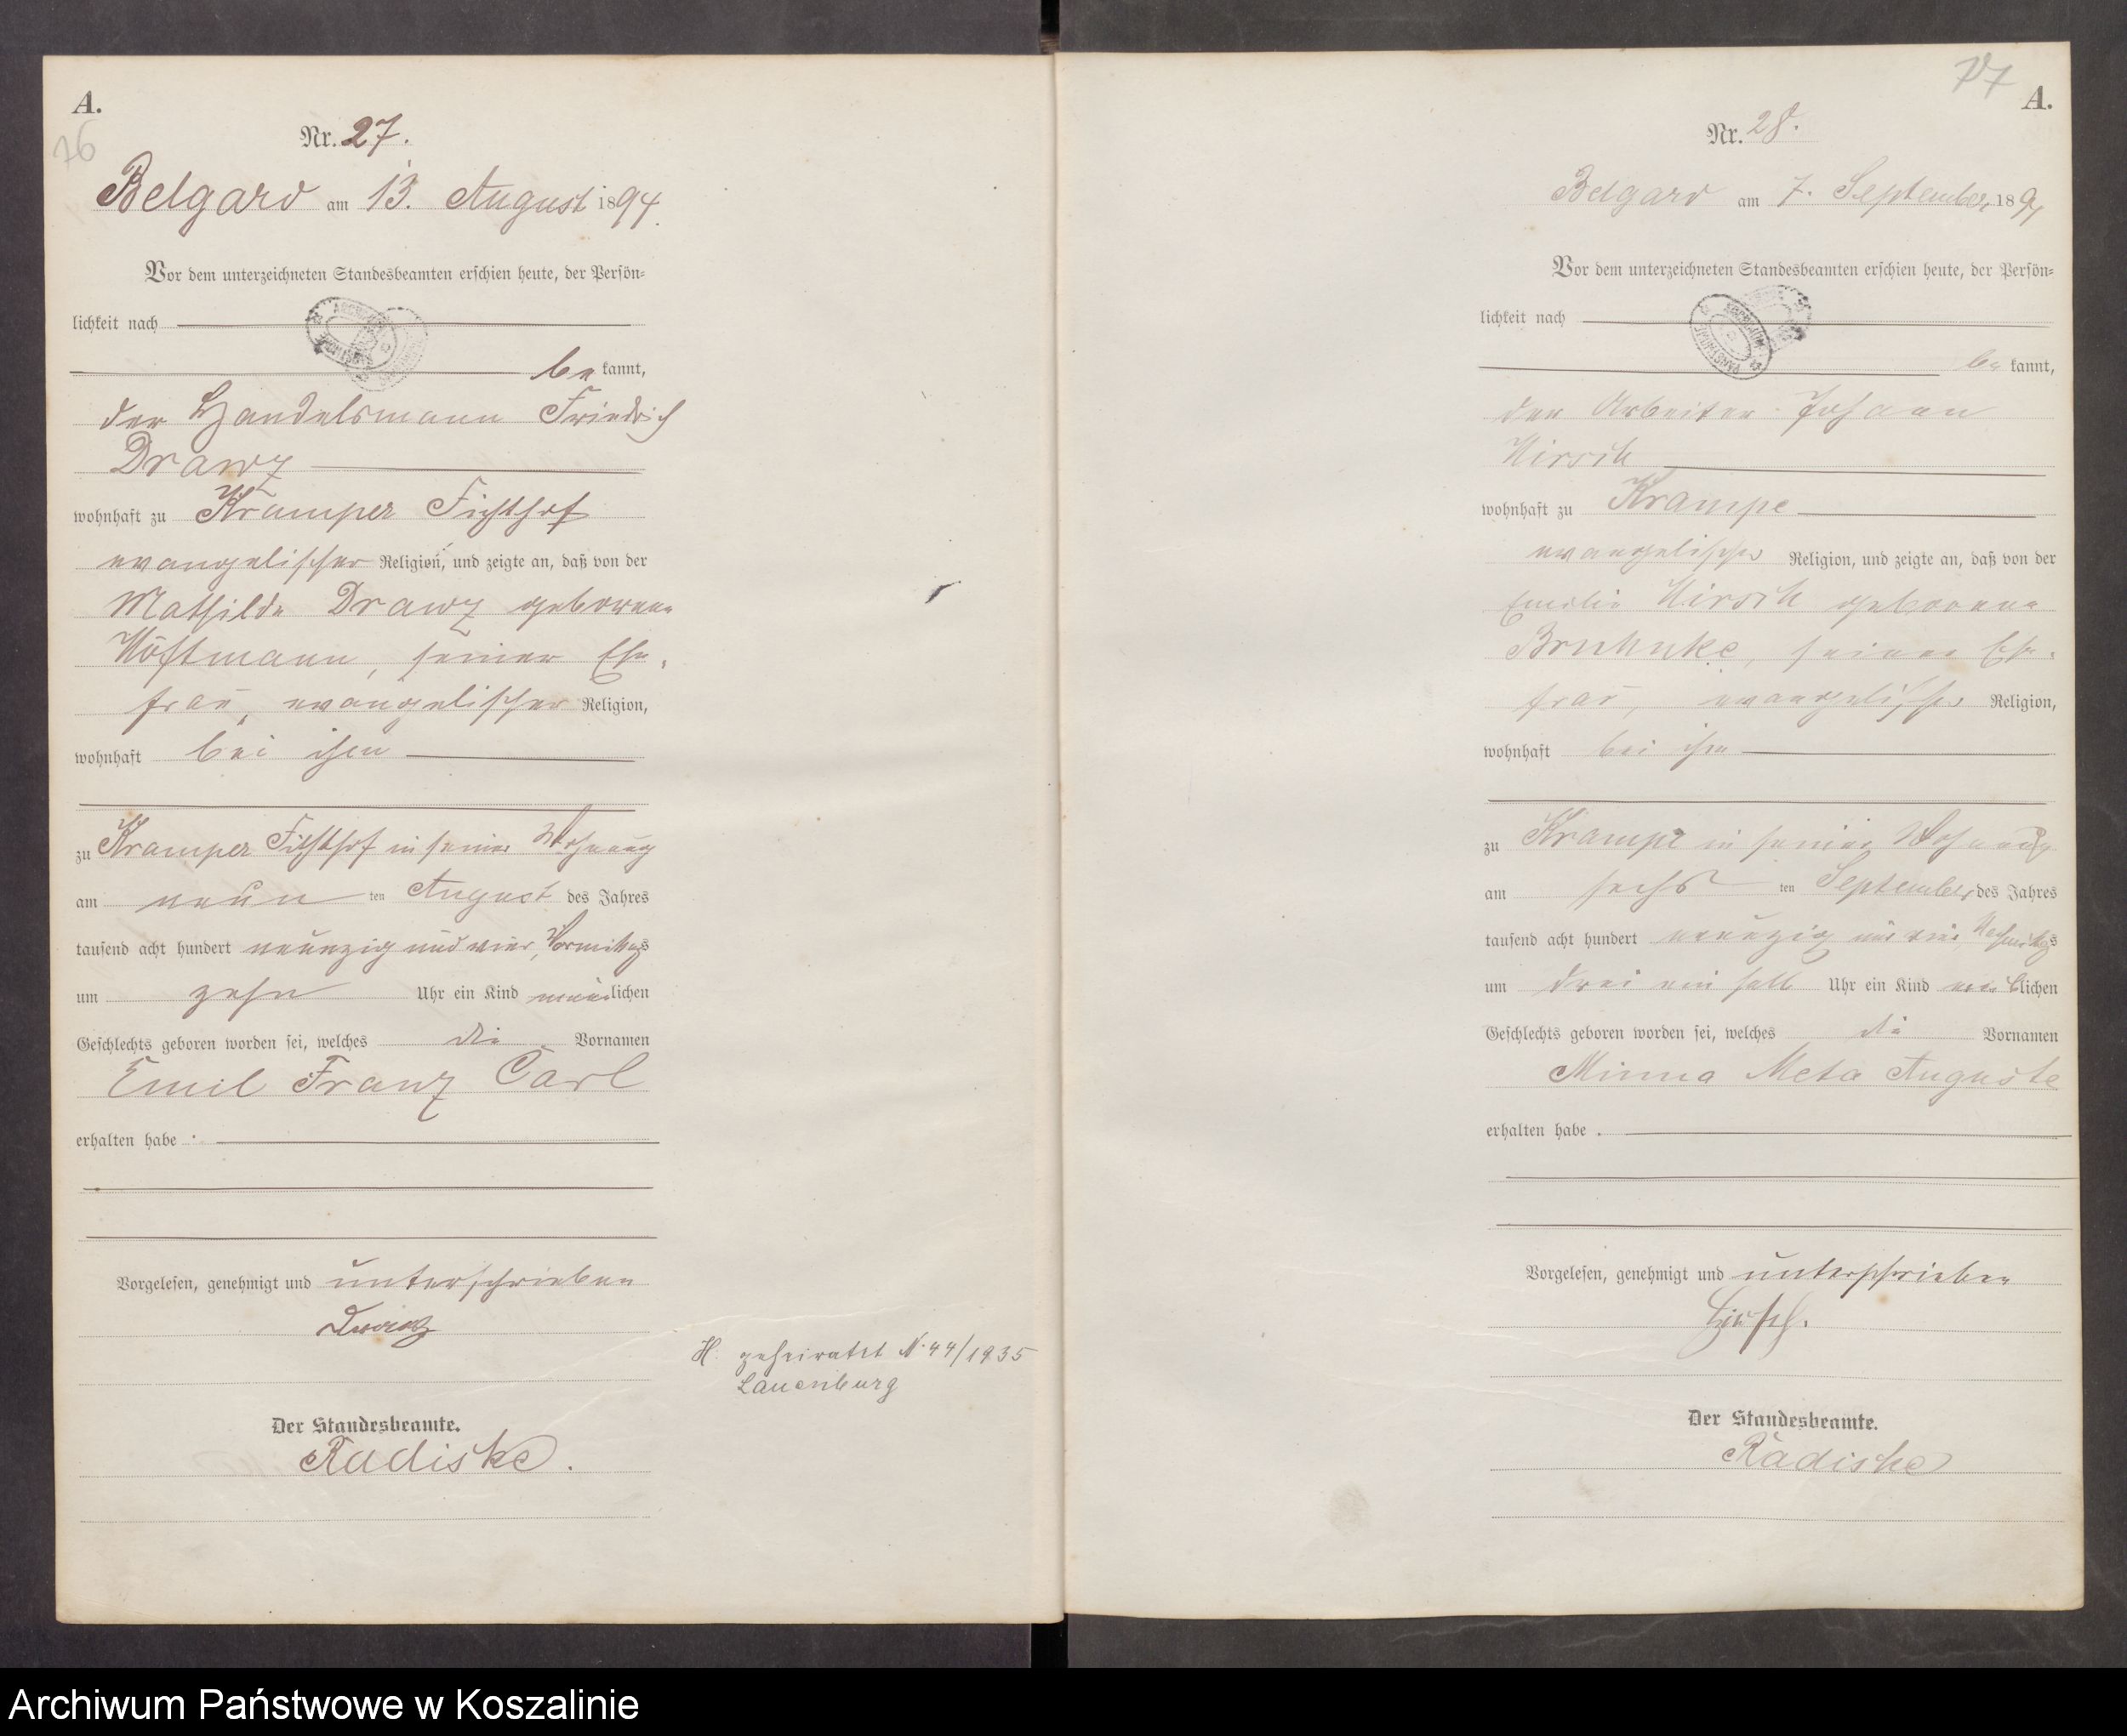 A.
76
Nr. 27.
Belgard am 13. August 1894.
Vor dem unterzeichneten Standesbeamten erschien heute, der Persön-
lichkeit nach
be kannt,
der Handelsmann Friedrich
Drawz
wohnhaft zu Kramper Fichthof
evangelischer Religion, und zeigte an, daß von der
Mathilde Drawz geborene
Höftmann, seiner Ehe-
frau, evangelischer Religion,
wohnhaft bei ihm
zu Kramper Fichthof in seiner Wohnung
am neun ten August des Jahres
tausend acht hundert neunzig und vier, Vormittags
um zehn Uhr ein Kind männlichen
Geschlechts geboren worden sei, welches die Vornamen
Emil Franz Carl
erhalten habe.
Vorgelesen, genehmigt und unterschrieben
Drawz
H. geheiratet N. 44/1935
Lauenburg
Der Standesbeamte.
Radiske.
77
A.
Nr. 28.
Belgard am 7. September 1894
Vor dem unterzeichneten Standesbeamten erschien heute, der Persön-
lichkeit nach
be kannt,
der Arbeiter Johann
Hirsch
wohnhaft zu Krampe
evangelischer Religion, und zeigte an, daß von der
Emilie Hirsch geborene
seiner Ehe-
frau, evangelischer Religion,
wohnhaft bei ihm
zu Krampe in seiner Wohnung
am sechs ten September des Jahres
tausend acht hundert neunzig und vier, Nachmittags
um drei ein halb Uhr ein Kind weiblichen
Geschlechts geboren worden sei, welches die Vornamen
Minna Meta Auguste
erhalten habe.
Vorgelesen, genehmigt und unterschrieben
Hirsch.
Der Standesbeamte.
Radiske
Archiwum Państwowe w Koszalinie